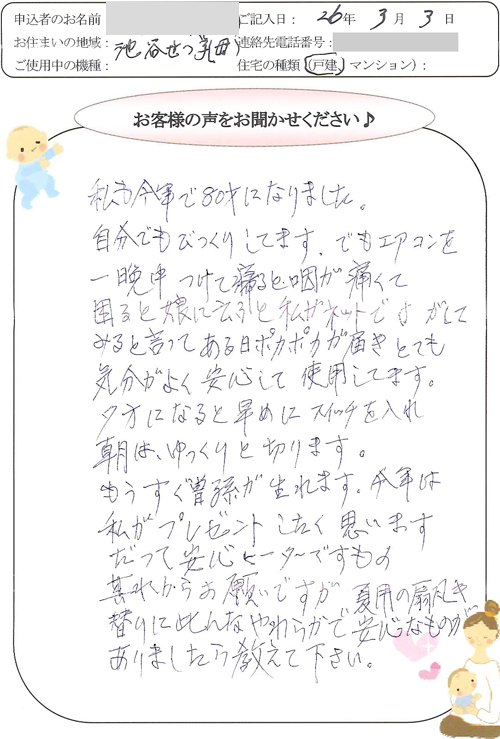 申込者のお名前
ご記入日： 26年 3月 3日
お住まいの地域： 池谷せつ(乳母)
連絡先電話番号：
ご使用中の機種：
住宅の種類（戸建 マンション）：
お客様の声をお聞かせください♪
私も今年で80才になりました。
自分でもびっくりしてます。でもエアコンを
一晩中つけて寝ると咽が痛くて
困ると娘に云うと私がネットでさがして
みると言ってある日ポカポカが届きとても
気分がよく安心して使用してます。
夕方になると早めにスイッチを入れ
朝は、ゆっくりと切ります。
もうすぐ曽孫が生れます。今年は
私がプレゼントしたく思います
だって安心ヒーターですもの
其れからお願いですが夏用の扇風キ
替りに此んなやわらかで安心なものが
ありましたら教えて下さい。